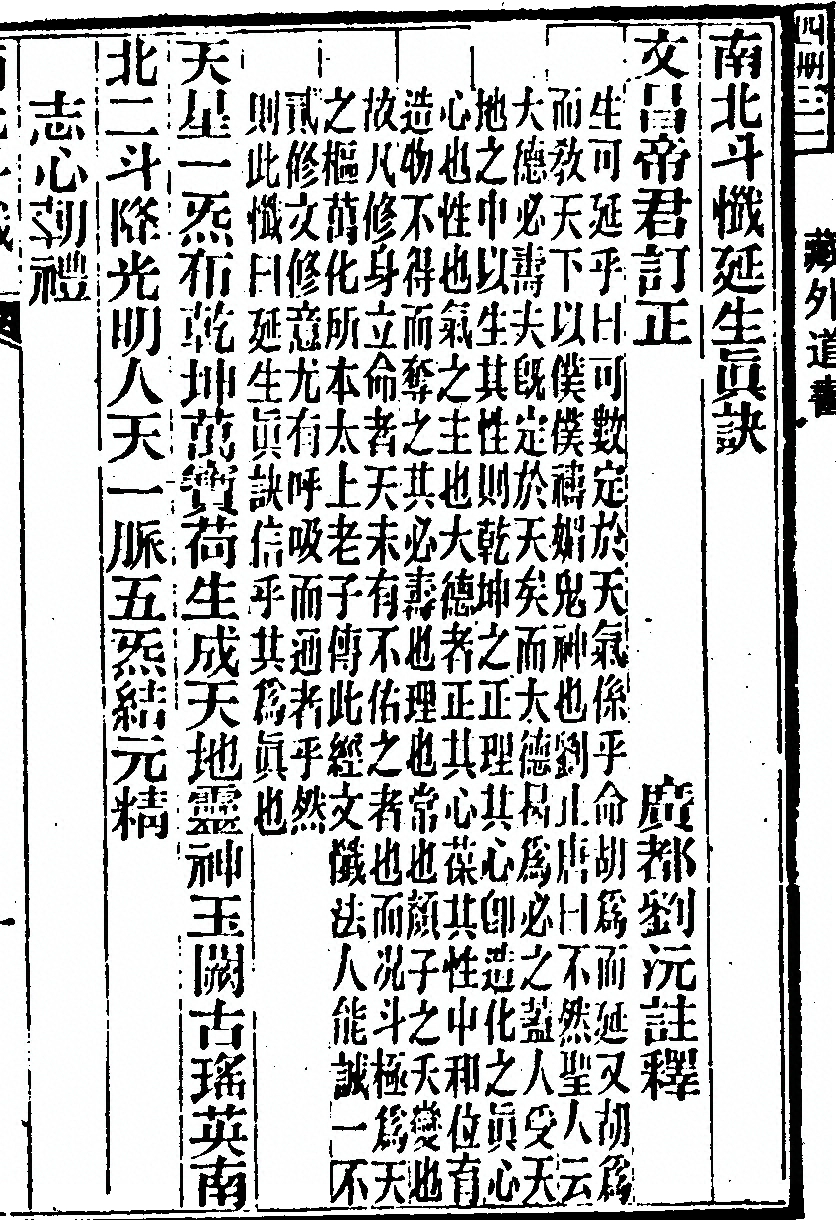 藏外道書
南北斗懺延生眞訣
文昌帝君訂正 廣都劉沅註釋
生可延乎曰可數定於天氣係乎命胡爲而延又胡爲
而教天下以僕僕禱媚鬼神也劉止唐曰不然聖人云
大德必壽夫旣定於天矣而大德曷爲必之蓋人受天
地之中以生其性則乾坤之正理其心卽造化之眞心
心也性也氣之主也大德者正其心葆其性中和位育
造物不得而奪之其必壽也理也常也顏子之夭變也
故凡修身立命者天未有不佑之者也而况斗極爲天
之樞萬化所本太上老子傳此經文懺法人能誠一不
貳修文修意尤有呼吸而通者乎然
則此懺曰延生眞訣信乎其爲眞也
天星一炁布乾坤萬寶荷生成天地靈神玉闕古瑤英南
北二斗降光明人天一脈五炁結元精
志心朝禮